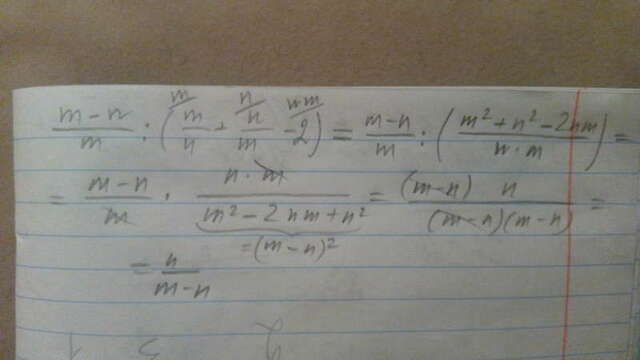 m n nm
(m-n)/m : (m/n + n/m - 2) = (m-n)/m : ((m²+n²-2nm)/(n·m)) =
= (m-n)/m · (n·m)/(m²-2nm+n²) = ((m-n) n)/((m-n)(m-n)) =
=(m-n)²
= n/(m-n)